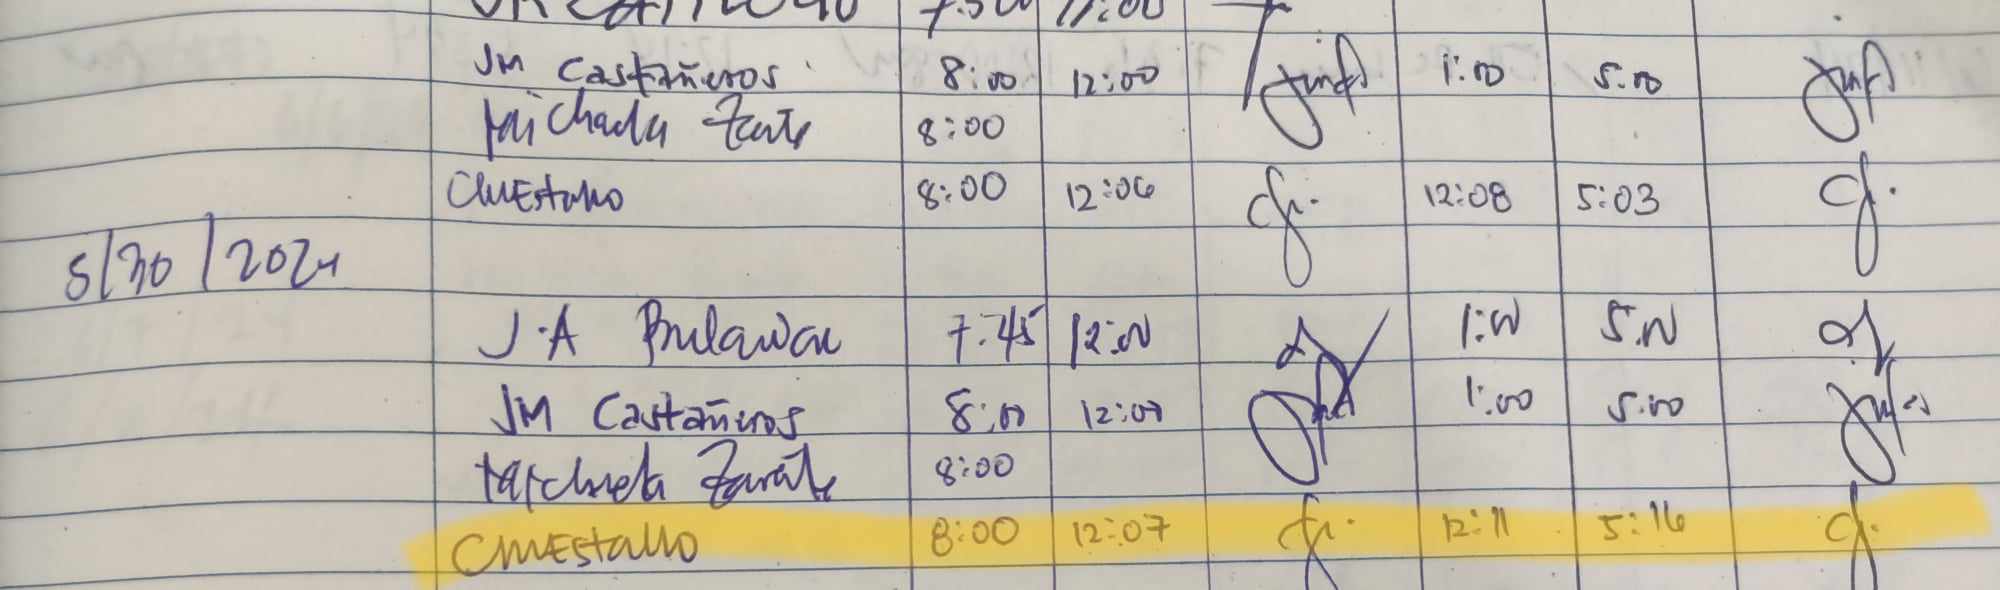 7:50 11:00
JM Castañeros 8:00 12:00 1:00 5:00
8:00
CMEstallo 8:00 12:06 12:08 5:03
5/30/2024
J.A Bulawan 7:45 12:00 1:00 5:00
JM Castañeros 8:00 12:00 1:00 5:00
Michaela Zarate 8:00
CMEstallo 8:00 12:07 12:11 5:16